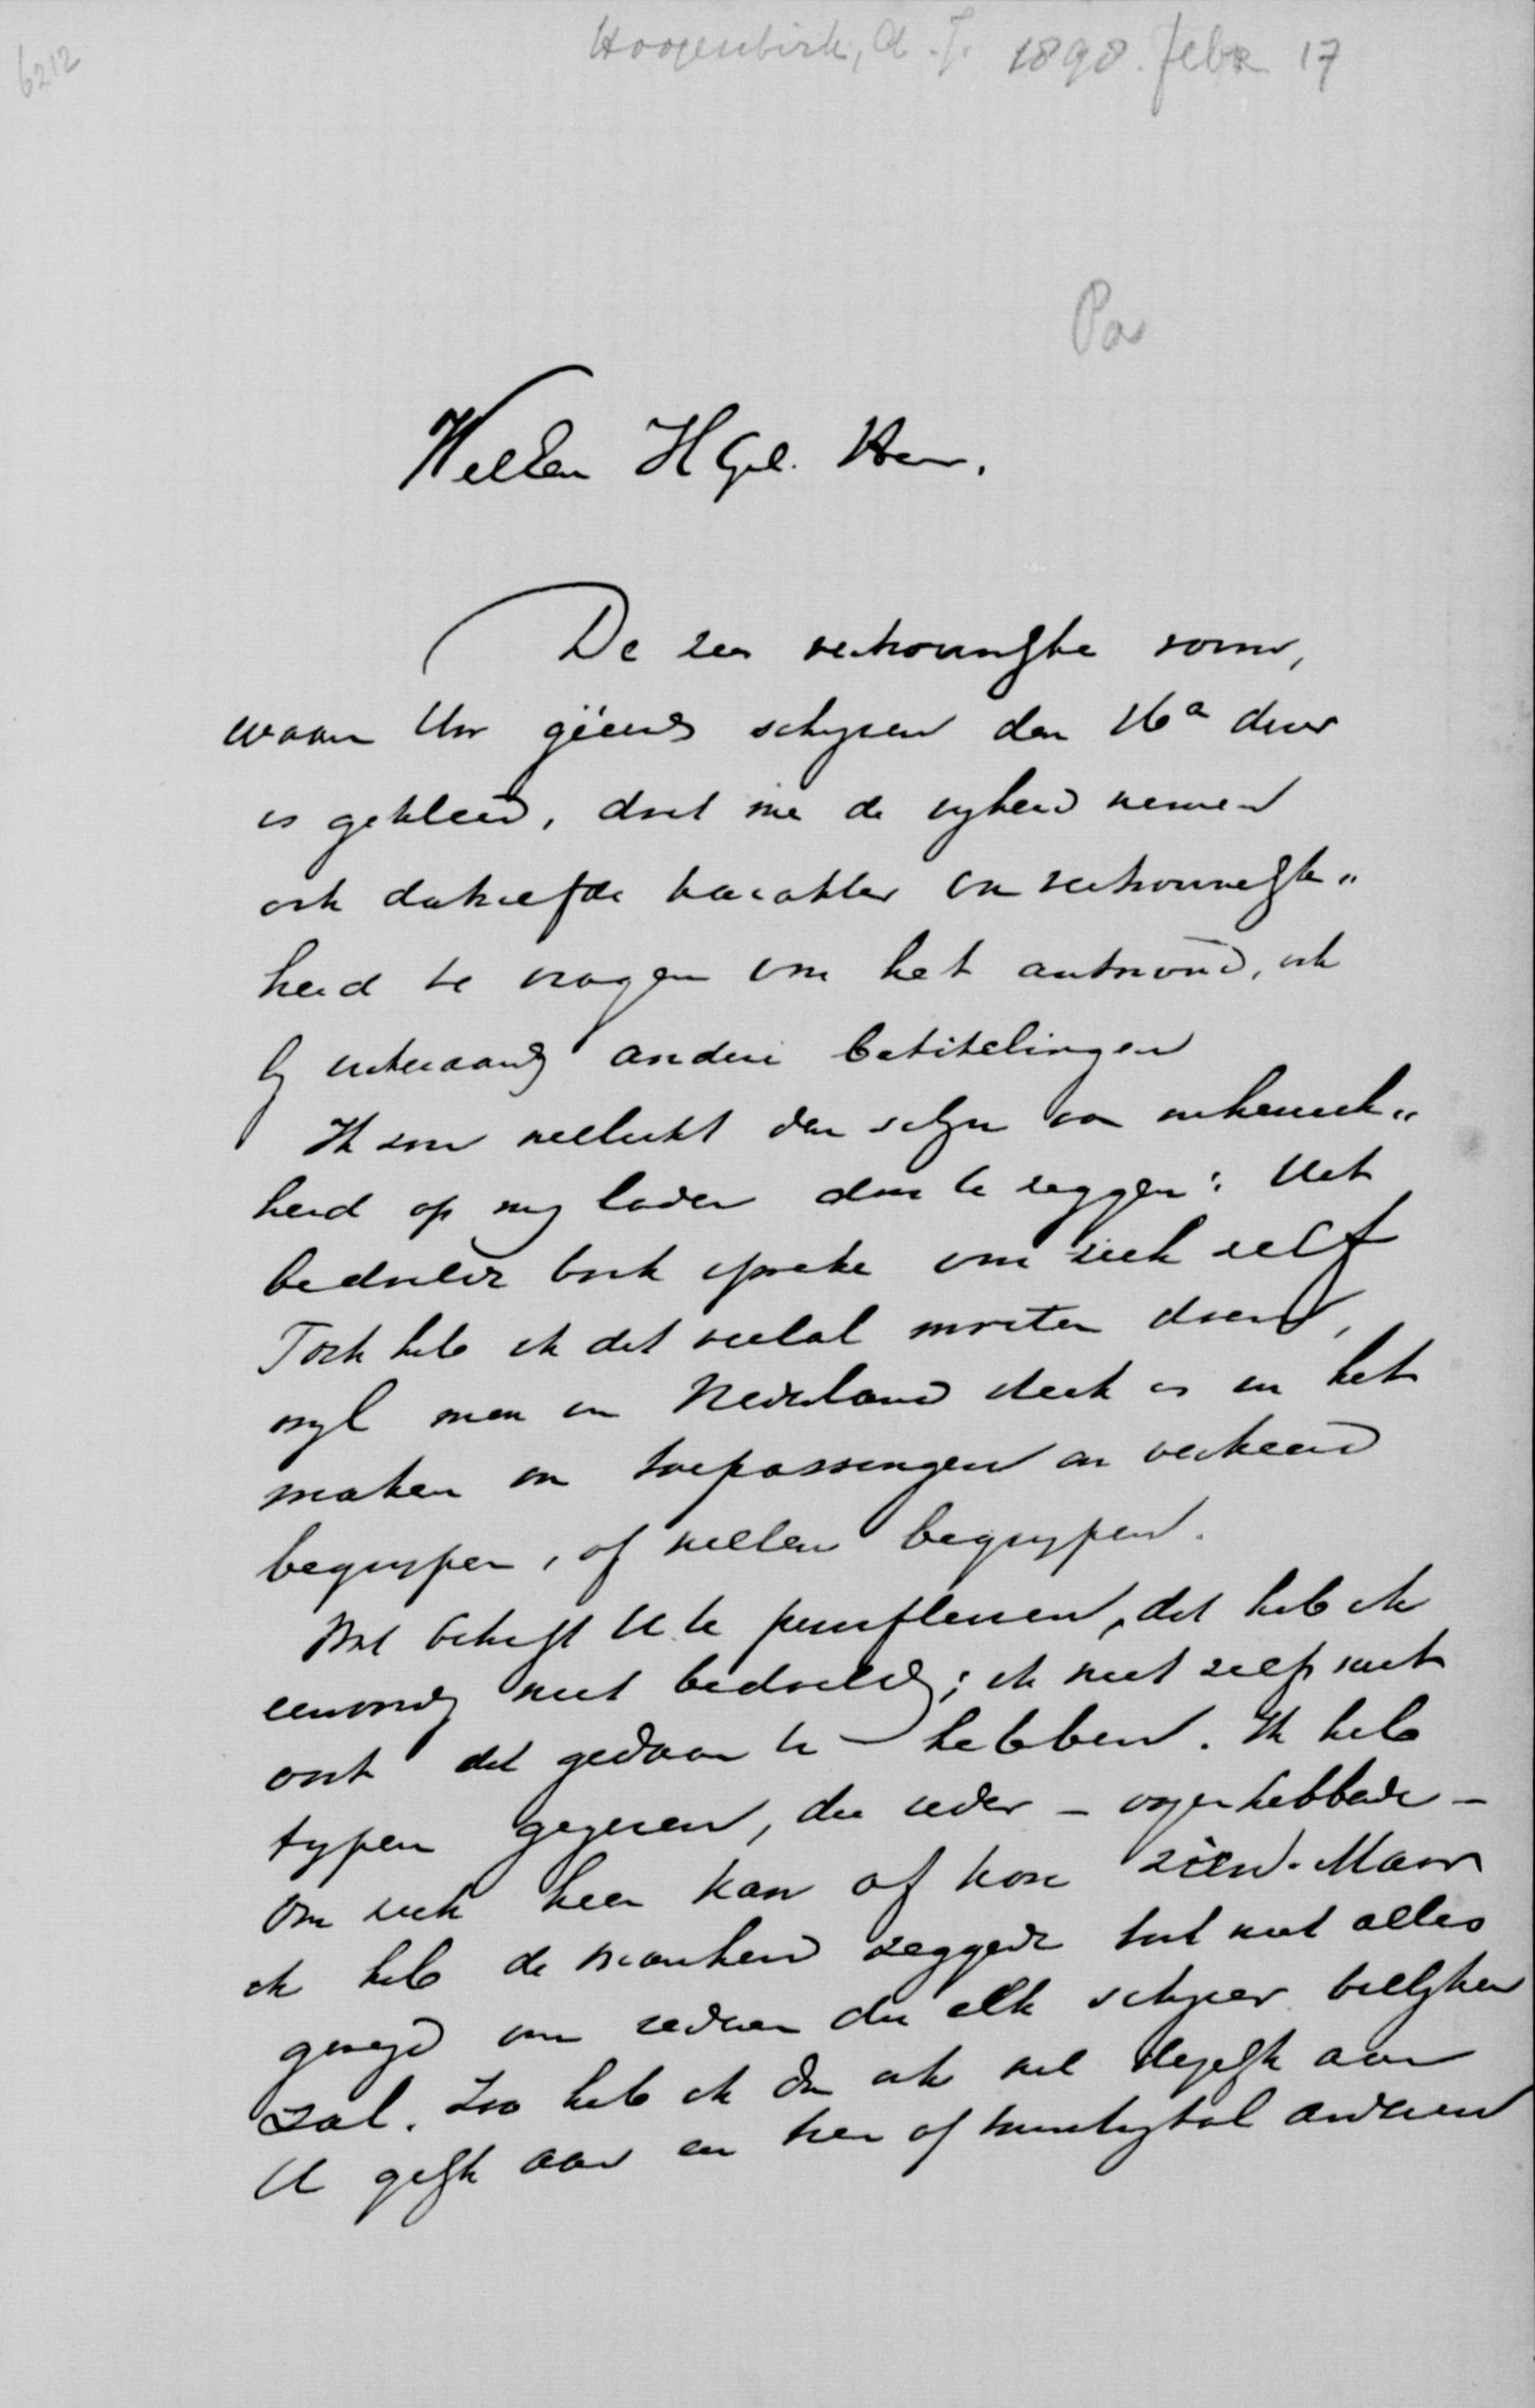 6212
Hoogenbirk, A. J. 1898. Febr. 17
Pa
WelEw HGel. Heer.
De zeer vertrouwelijke vorm,
waarin Uw geëerd schrijven den 16a dezer
is gekleed, doet me de vrijheid nemen
ook datzelfde karakter van vertrouwelijk„
heid te vragen voor het antwoord, ook
bij andere betitelingen
Ik zou wellicht den schijn van onheusch„
heid op mij laden door te zeggen: Het
bedoelde boek spreke voor zich zelf
Toch heb ik dit veelal moeten doen,
wijl men in Nederland sterk is in het
maken van toepassingen en verkeerd
begrijpen, of willen begrijpen.
Wat betreft U te persifleren, dit heb ik
eenvoudig niet bedoeld; ik weet zelfs niet
ooit dit gedaan te hebben. Ik heb
typen gegeven, die ieder – oogen hebbende –
om zich heen kan of kon zien. Maar
ik heb de waarheid zeggende toch niet alles
gezegd om redenen die elk schrijver billijken
zal. Zoo heb ik dan ook wel degelijk aan
U gelijk aan een tien of twintigtal anderen